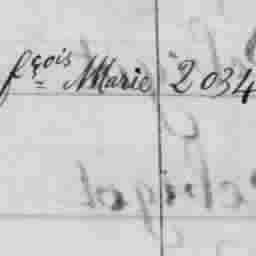 fçois Marie 2034